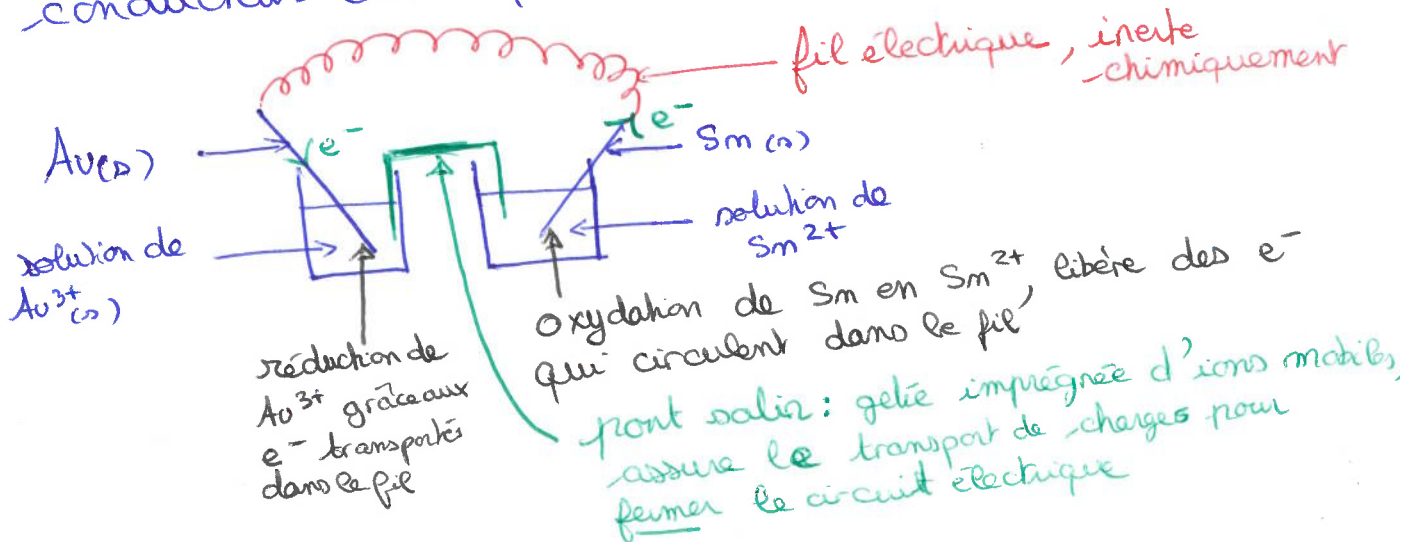 conducteur
fil électrique, inerte
chimiquement
Au(s)
e⁻
e⁻
Sn (s)
solution de
Au³⁺(s)
solution de
Sn²⁺
réduction de
Au³⁺ grâce aux
e⁻ transportés
dans le fil
oxydation de Sn en Sn²⁺, libère des e⁻
qui circulent dans le fil
pont salin : gelée imprégnée d'ions mobiles,
assure le transport de charges pour
fermer le circuit électrique